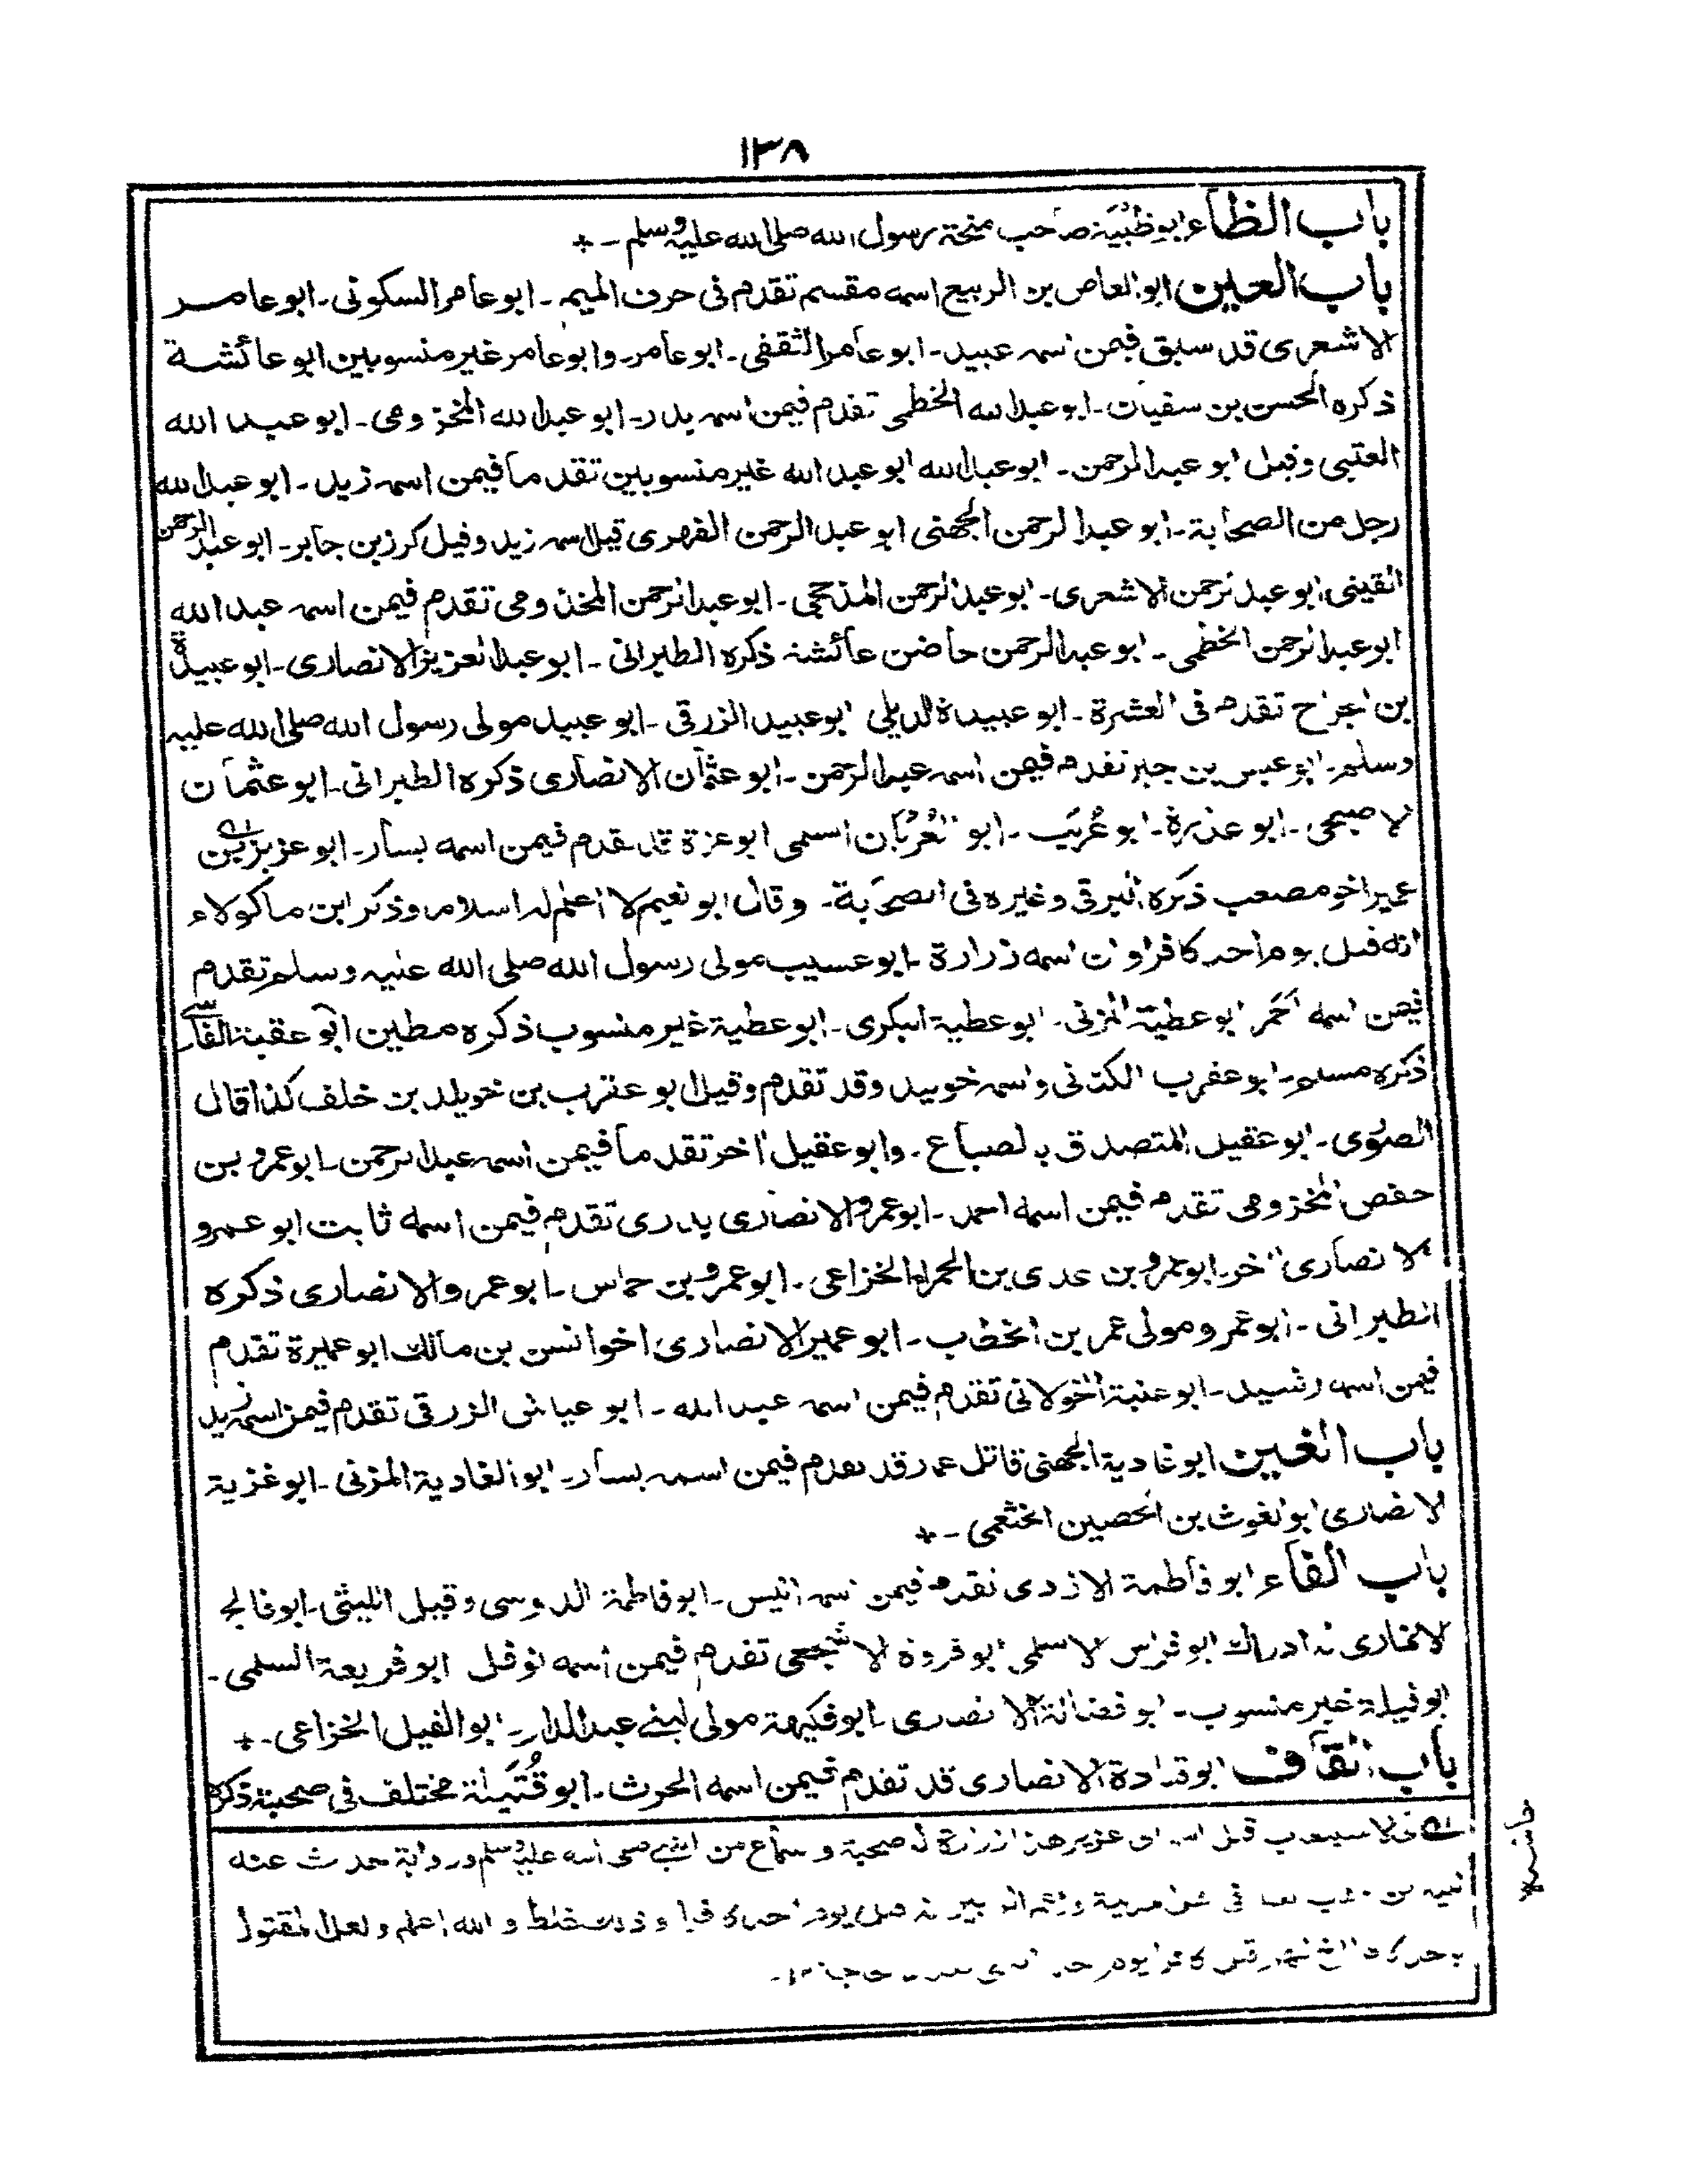 ١٣٨
باب الظاء ابو ظبية صاحب منحة رسول الله صلى الله عليه وسلم ـ +
باب العين ابو العاص بن الربيع اسمه مقسم تقدم فى حرف الميم ـ ابو عامر السكونى ـ ابو عامر
الاشعرى قد سبق فيمن اسمه عبيد ـ ابو عامر الثقفى ـ ابو عامر ـ وابو عامر غير منسوبين ابو عائشة
ذكره الحسن بن سفيان ـ ابو عبد الله الخطمى تقدم فيمن اسمه بدر ـ ابو عبد الله المخزومى ـ ابو عبد الله
العتبى وقيل ابو عبد الرحمن ـ ابو عبد الله ابو عبد الله غير منسوبين تقدما فيمن اسمه زيد ـ ابو عبد الله
رجل من الصحابة ـ ابو عبد الرحمن الجهنى ابو عبد الرحمن الفهرى قيل اسمه زيد وقيل كرز بن جابر ـ ابو عبد الرحمن
القينى ابو عبد الرحمن الاشعرى ـ ابو عبد الرحمن المذحجى ـ ابو عبد الرحمن المخذومى تقدم فيمن اسمه عبد الله
ابو عبد الرحمن الخطمى ـ ابو عبد الرحمن حاضن عائشة ذكره الطبرانى ـ ابو عبد العزيز الانصارى ـ ابو عبيدة
بن الجراح تقدم فى العشرة ـ ابو عبيدة الديلى ابو عبيد الزرقى ـ ابو عبيد مولى رسول الله صلى الله عليه
وسلم ـ ابو عبس بن جبر تقدم فيمن اسمه عبد الرحمن ـ ابو عثمان الانصارى ذكره الطبرانى ـ ابو عثمان
الاصبحى ـ ابو عذرة ـ ابو عُريَب ـ ابو العُرْيان السلمى ابو عزة قد تقدم فيمن اسمه يسار ـ ابو عزيز بن
عمير اخو مصعب ذكره البرقى وغيره فى الصحابة ـ وقال ابو نعيم لا اعلم له اسلاما وذكر ابن ماكولاء
انه قتل يوم احد كافرا وان اسمه زرارة ـ ابو عسيب مولى رسول الله صلى الله عليه وسلم تقدم
فيمن اسمه احمر ابو عطية المزنى ـ ابو عطية البكرى ـ ابو عطية غير منسوب ذكره مطين ابو عقبة الفارسى
ذكره مسلم ـ ابو عقرب الكنانى واسمه خويلد وقد تقدم وقيل ابو عقرب بن خويلد بن خلف كذا قال
الصورى ـ ابو عقيل المتصدق بالصاع ـ وابو عقيل اخر تقدما فيمن اسمه عبد الرحمن ـ ابو عمرو بن
حفص المخزومى تقدم فيمن اسمه احمد ـ ابو عمرو الانصارى بدرى تقدم فيمن اسمه ثابت ابو عمرو
الانصارى اخر ـ ابو عمرو بن عدى بن الحمراء الخزاعى ـ ابو عمرو بن حماس ـ ابو عمرو الانصارى ذكره
الطبرانى ـ ابو عمرو مولى عمر بن الخطاب ـ ابو عمير الانصارى اخو انس بن مالك ابو عميرة تقدم
فيمن اسمه رشيد ـ ابو عنبة الخولانى تقدم فيمن اسمه عبد الله ـ ابو عياش الزرقى تقدم فيمن اسمه زيد
باب الغين ابو غادية الجهنى قاتل عمار قد تقدم فيمن اسمه يسار ـ ابو الغادية المزنى ـ ابو غزية
الانصارى ابو الغوث بن الحصين الخثعمى ـ +
باب الفاء ابو فاطمة الازدى تقدم فيمن اسمه انيس ـ ابو فاطمة الدوسى وقيل الليثى ـ ابو فالج
الانمارى له ادراك ابو فراس الاسلمى ابو فروة الاشجعى تقدم فيمن اسمه نوفل ابو فريعة السلمى ـ
ابو فسيلة غير منسوب ـ ابو فضالة الانصارى ـ ابو فكيهة مولى لبنى عبد الدار ـ ابو الفيل الخزاعى ـ +
باب القاف ابو قتادة الانصارى قد تقدم فيمن اسمه الحرث ـ ابو قُتَيلة مختلف فى صحبته ذكره
عزيز هذا زرارة له صحبة وسماع من النبى صلى الله عليه وسلم ورواية حدث عنه
نبيه بن وهب وذلك غلط و الله اعلم ولعل المقتول
حاشيه